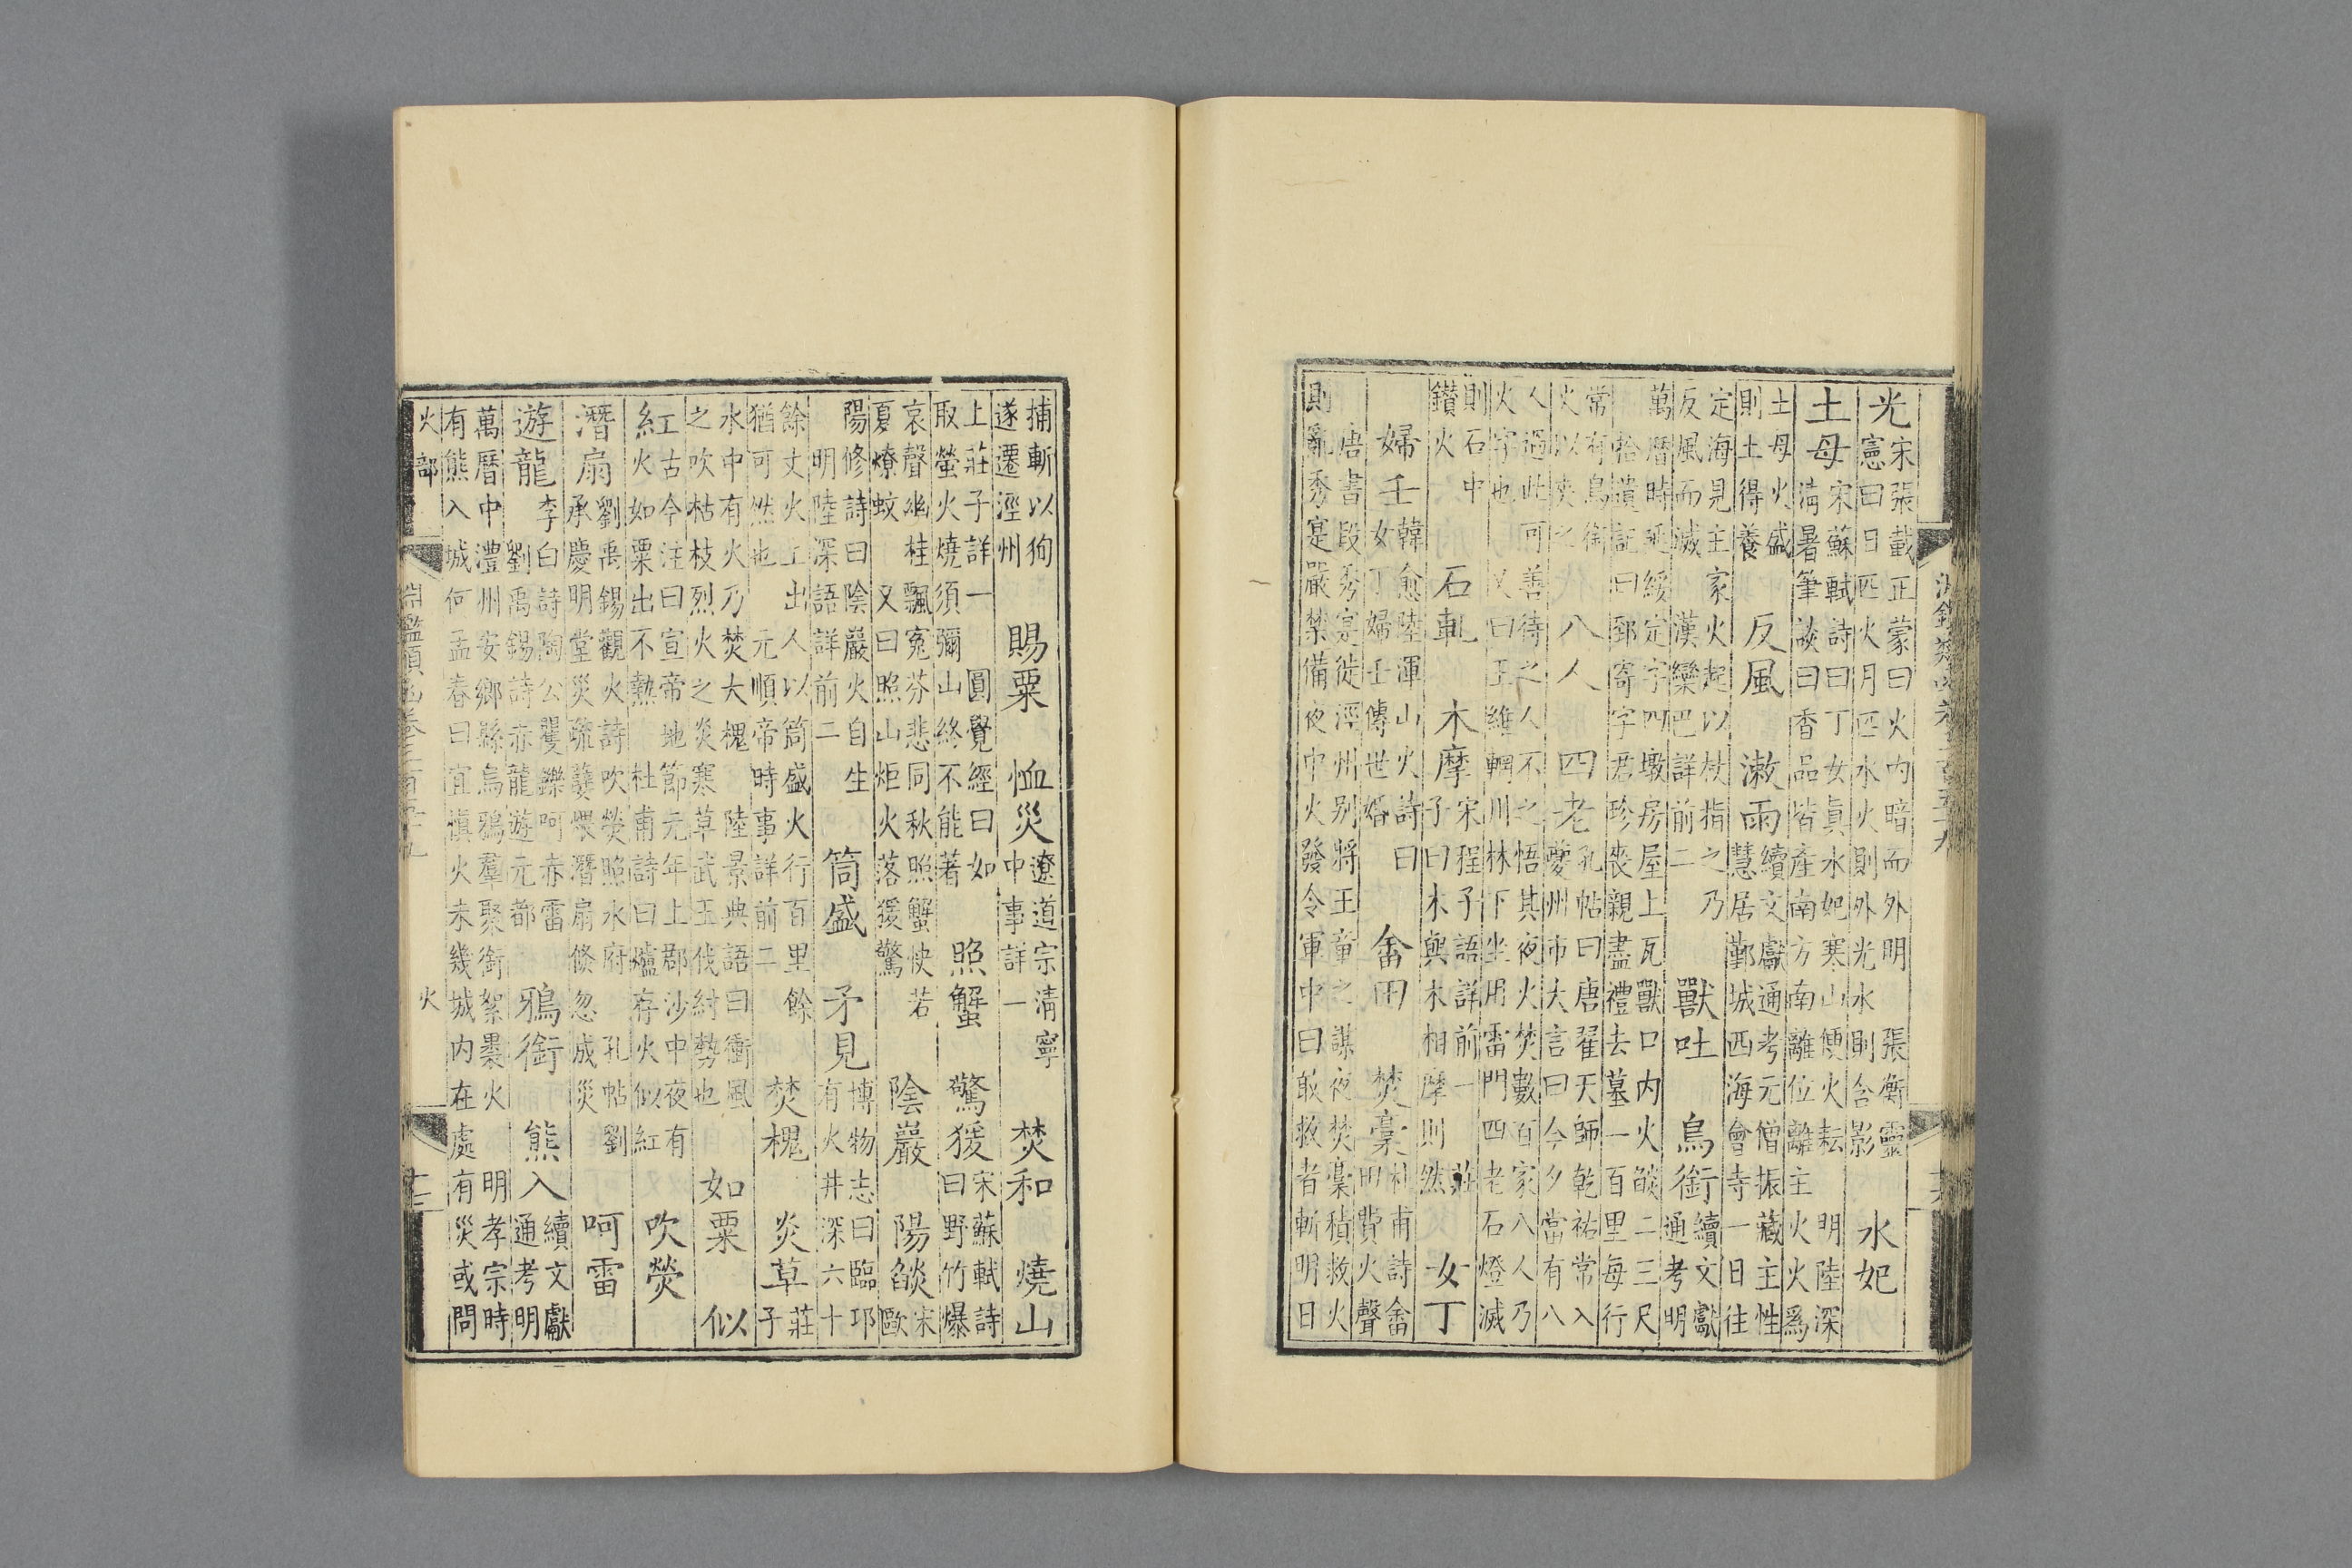 光宋張載正蒙曰火內暗而外明 張衡靈憲曰日匹火月匹水火則外光水則含影 水妃
土母宋蘇軾詩曰丁女眞水妃寒山便火耘 明陸深清暑筆談曰香品皆產南方南離位離主火火爲
土母火盛則土得養 反風 漱雨續文獻通考元僧振藏主性慧居鄞城西海會寺一日往
定海見主家火起以杖指之乃反風而滅 漢欒巴詳前二 獸吐 鳥銜續文獻通考明
萬曆時延綏定字四墩房屋上瓦獸口內火燄二三尺 拾遺記曰郅寄字君珍喪親盡禮去墓一百里每行
常有鳥銜火以夾之 八人 四老孔帖曰唐翟天師乾祐常入夔州市大言曰今夕當有八
人過此可善待之人不之悟其夜火焚數百家八人乃火字也 又曰王維輞川林下坐用雷門四老石燈滅
則石中鑽火 石軋 木摩宋程子語詳前一 莊子曰木與木相摩則然 女丁
婦壬韓愈陸渾山火詩曰女丁婦壬傳世婚 畬田 焚槀杜甫詩畬田費火聲
唐書段秀寔徙涇州別將王童之謀夜焚槀積救火則亂秀寔嚴禁備夜中火發令軍中曰敢救者斬明日
捕斬以徇遂遷涇州 賜粟 恤災遼道宗清寧中事詳一 焚和 燒山
上莊子詳一 圓覺經曰如取螢火燒須彌山終不能著 照蟹 驚猨宋蘇軾詩曰野竹爆
哀聲幽桂飄冤芬悲同秋照蟹快若夏燎蚊 又曰照山炬火落猨驚 陰巖 陽燄宋歐
陽修詩曰陰巖火自生 明陸深語詳前二 筒盛 矛見博物志曰臨邛有火井深六十
餘丈火上出人以筒盛火行百里餘猶可然也 元順帝時事詳前二 焚槐 炎草莊子
水中有火乃焚大槐 陸景典語曰衝風之吹枯枝烈火之炎寒草武王伐紂勢也 如粟 似
紅古今注曰宣帝地節元年上郡沙中夜有火如粟出不熱 杜甫詩曰爐存火似紅 吹熒
潛扇劉禹錫觀火詩吹熒照水府 孔帖劉承慶明堂災疏孽煨潛扇倏忽成災 呵雷
遊龍李白詩陶公矍鑠呵赤雷 劉禹錫詩赤龍遊元都 鴉銜 熊入續文獻通考明
萬曆中澧州安鄉縣烏鴉羣聚銜絮裹火 明孝宗時有熊入城何孟春曰宜慎火未幾城內在處有災或問
火部 火
淵鑑類函卷三百五十九